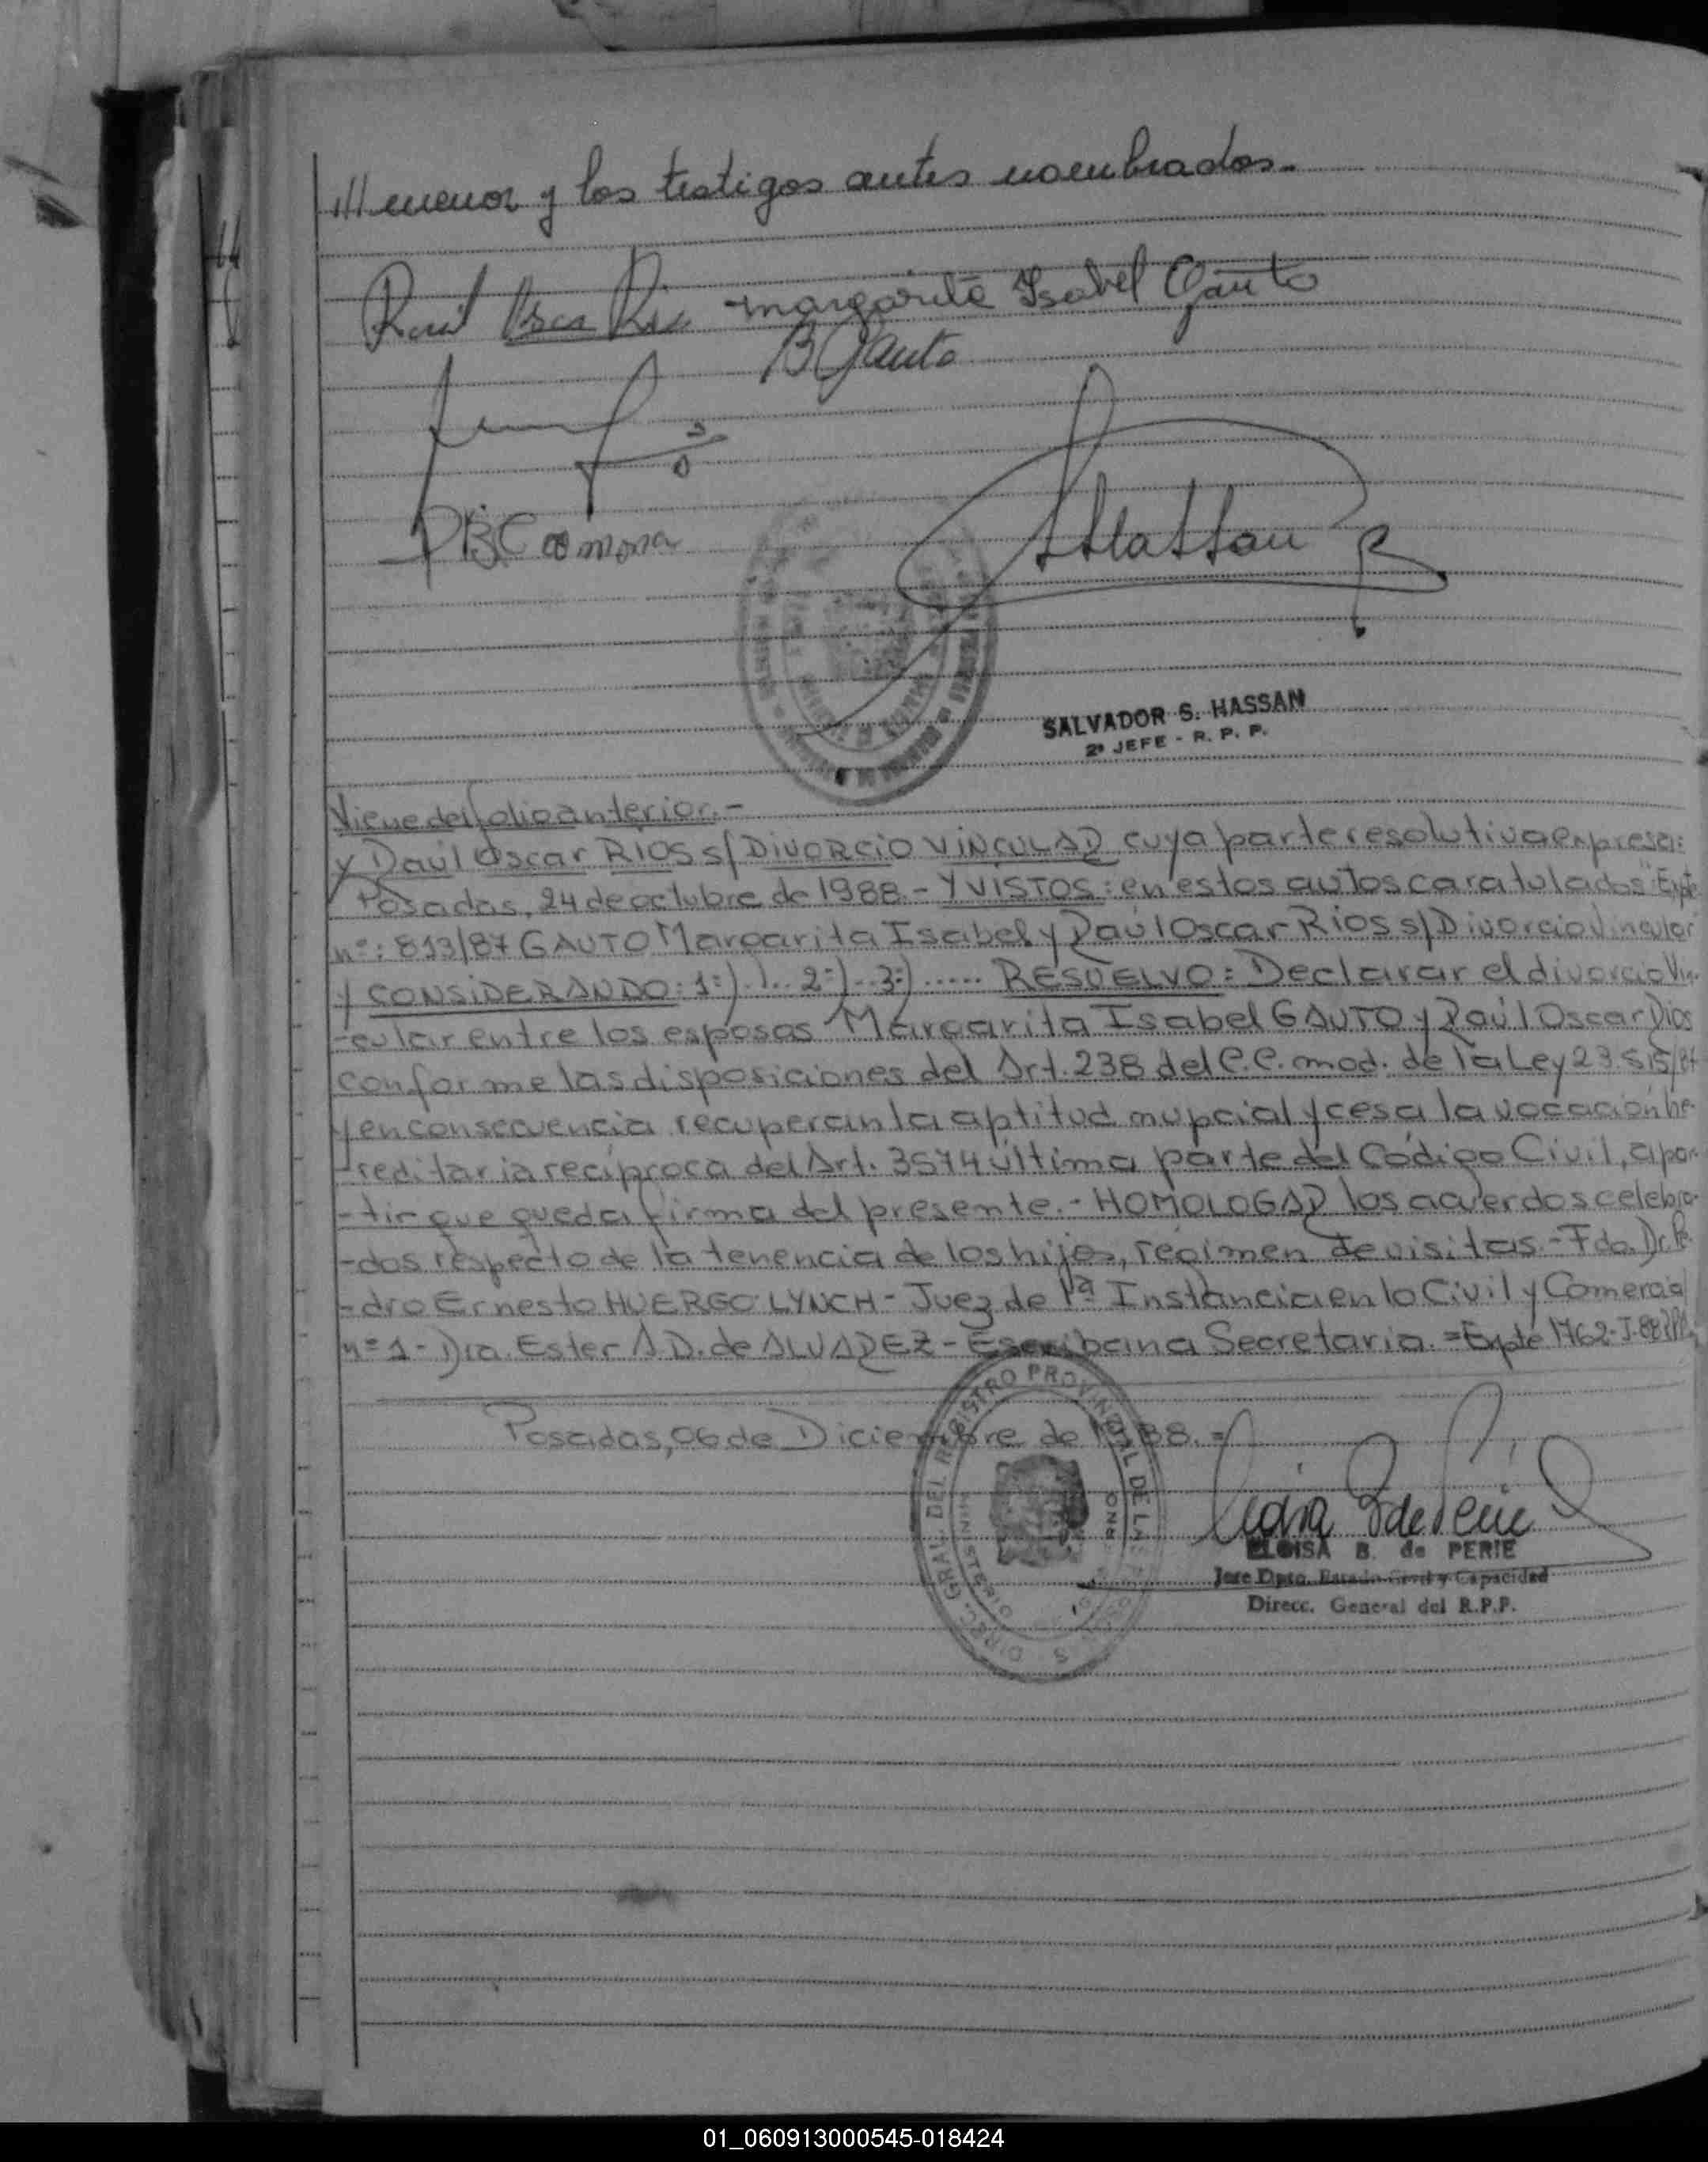 /// menor y los testigos antes nombrados.-
Raúl Oscar Rios Margarita Isabel Gauto
B Gauto
SHassan
SALVADOR S. HASSAN
2º JEFE - R. P. P.
Viene del folio anterior.-
y Raúl Oscar RIOS s/DIVORCIO VINCULAR cuya parte resolutiva expresa:
Posadas, 24 de octubre de 1988.- Y VISTOS: en estos autos caratulados "Expte
nº: 813/87 GAUTO Margarita Isabel y Raúl Oscar Rios s/Divorcio Vincular
y CONSIDERANDO: 1:)... 2:)...3:)..... RESUELVO: Declarar el divorcio Vin-
-cular entre los esposos Margarita Isabel GAUTO y Raúl Oscar Rios
conforme las disposiciones del Art. 238 del C.C. mod. de la Ley 23.515/87
y en consecuencia recuperan la aptitud nupcial y cesa la vocación he-
-reditaria recíproca del Art. 3574 última parte del Código Civil, a par-
-tir que queda firma del presente.- HOMOLOGAR los acuerdos celebra-
-dos respecto de la tenencia de los hijos, régimen de visitas.- Fdo. Dr. Pe-
-dro Ernesto HUERGO LYNCH - Juez de 1ª Instancia en lo Civil y Comercial
nº 1 - Dra. Ester A D. de ALVAREZ - Escribana Secretaria.= Expte 1762-J-88
Posadas, 06 de Diciembre de 1988.=
DIREC. GRAL. DEL REGISTRO PROVINCIAL DE LAS
MINISTERIO
ELOISA B. de PERIE
Jefe Dpto. Estado Civil y Capacidad
Direcc. General del R.P.P.
01_060913000545-018424